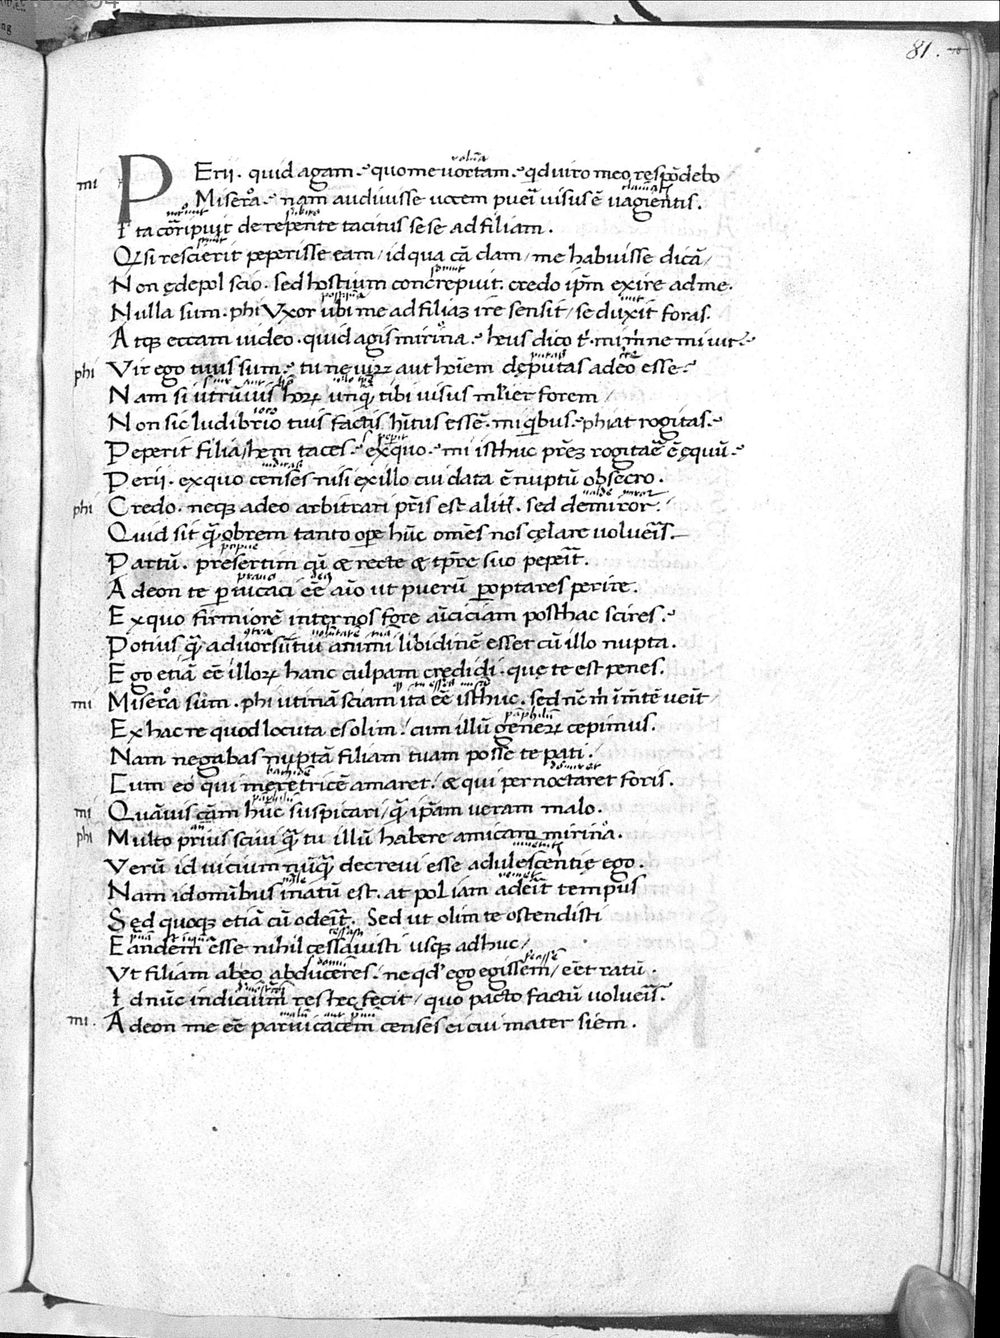 81.
uoluā
mi PErii. quid agam. quo me uortam. qd uiro meo respōdebo
clamātis
Misera. nam audiuisse uocem pueri uisus ē uagientis.
subito
Ita corripuit derepente tacitus sese ad filiam.
Qd si rescierit peperisse eam / id qua cā clam / me habuisse dicā /
sonuit
Non ędepol scio. sed hostium concrepuit. credo ipm̄ exire ad me.
postquā
Nulla sum. phi Vxor ubi me ad filiaʒ ire sensit / se duxit foras.
Atqʒ eccam uideo. quid agis mirina. heus dico t̄. mi mi ne mi uir.
putas
phi Vir ego tuus sum. tu ne uirū aut hoīem dęputas adeo esse.
Nam si utrūuis hoꝝ unꝙ̄ tibi uisus mulier forem /
ioco
Non sic ludibrio tuis factis hītus essē. mi qibus. phi at rogitas.
peperit
Peperit filia / hem taces. ex quo. mi isthuc prēʒ rogitare ē ęquū.
iudicas
Perii. ex quo censes nisi ex illo cui data ē nuptū obsecro.
ualde miror
phi Credo. neqʒ adeo arbitrari pr̄is est alitr̄. sed demiror.
Quid sit ꝙ̄ obrem tanto oꝑe hūc omēs nos cęlare uolueris̄.
proprie
Partū. presertim qū & recte & tp̄re suo peperit̄.
praua
Adeon te ꝑuicaci eē aīo ut puerū p̄optares perire.
Ex quo firmiorē inter nos fore amiciciam posthac scires.
contra uoluntatē tuā
Potius ꝙ̄ aduorsū tui animi libidinē esset cū illo nupta.
Ego etiā eē illoꝝ hanc culpam credidi. quę te est penes.
mi Misera sum. phi utinā sciam ita eē isthuc. sed nc̄ m̄ in mtē uenit
pāphilū
Ex hac re quod locuta es olim / cum illū generʒ cepimus.
Nam negabas nuptā filiam tuam posse te pati.
bachidē dormiret
Cum eo qui meretricē amaret / & qui pernoctaret foris.
pamphilū
mi Quāuis cām hūc suspicari / ꝙ̄ ipam ueram malo.
phi Multo prius sciui ꝙ̄ tu illū habere amicam mirina.
iuuentuti
Verū id uicium nūꝙ̄ decreui esse adulescentię ego.
ueniet
Nam id omibus inatū est. at pol iam aderit̄ tempus
Sed quoqʒ etiā cū oderit̄. Sed ut olim te ostendisti
cessasti
Eandem esse nihil cessauisti usqʒ adhuc /
domū fecisse
Vt filiam abeo abduceres. ne qd ego egissem / eēt ratū.
Id nūc indicium res hęc fecit / quo pacto factū uolueris̄.
malū
mi. Adeon me eē peruicacem censes ei cui mater siem.